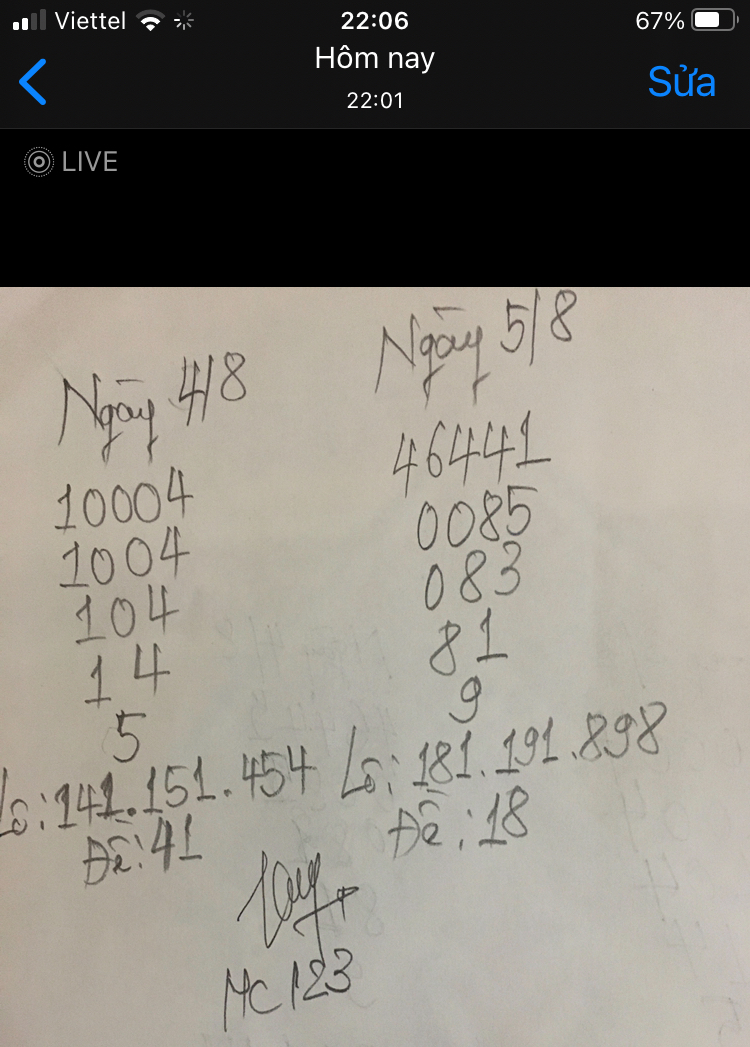 Viettel 22:06 67%
Hôm nay
22:01
Sửa
LIVE
Ngày 4/8
10004
1004
104
14
5
Lô: 141.151.454
Đề: 41
Ngày 5/8
46441
0085
083
81
9
Lô: 181.191.898
Đề: 18
MC123